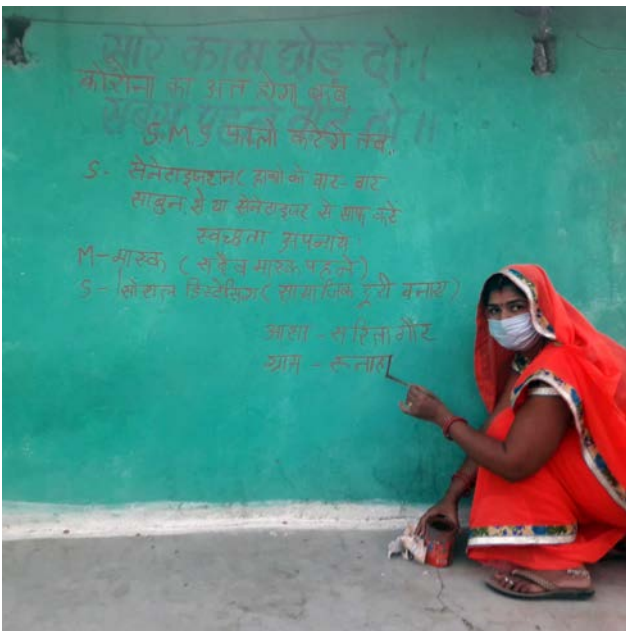 सारे काम छोड़ दो।
कोरोना का अंत होगा जब
सबसे पहले वोट दो॥
S.M.S फालो करेंगे तब.
S- सेनेटाइजेशन( हाथों को बार-बार
साबुन से या सेनेटाइजर से साफ करें
स्वच्छता अपनाये
M-मास्क ( सदैव मास्क पहने)
S- सोशल डिस्टेंसिंग( सामाजिक दूरी बनाये)
आशा - सरिता गौर
ग्राम -